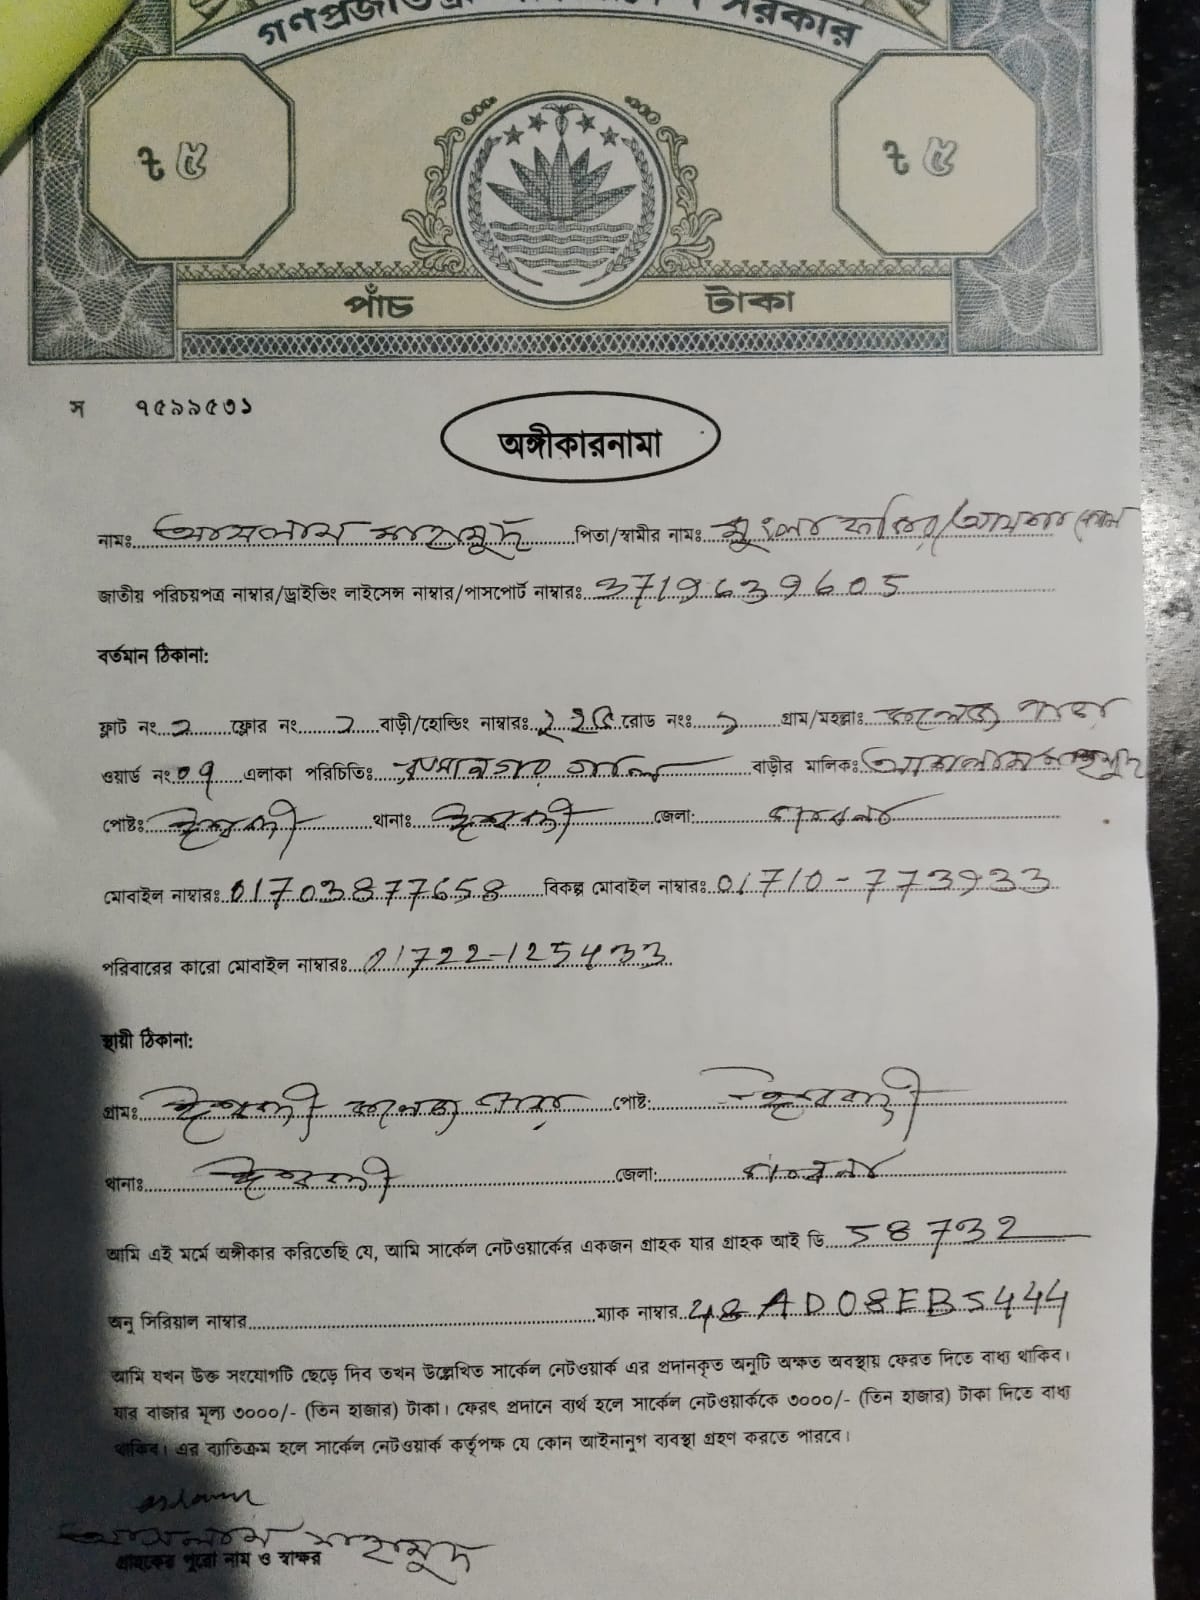 গণপ্রজাতন্ত্রী সরকার
৳ ৫ ৳ ৫
পাঁচ টাকা
স ৭৫৯৯৫৩১
অঙ্গীকারনামা
নামঃ আসলাম মাহমুদ পিতা/স্বামীর নামঃ
জাতীয় পরিচয়পত্র নাম্বার/ড্রাইভিং লাইসেন্স নাম্বার/পাসপোর্ট নাম্বারঃ 3719639605
বর্তমান ঠিকানা:
ফ্লাট নং 2 ফ্লোর নং 2 বাড়ী/হোল্ডিং নাম্বারঃ রোড নংঃ গ্রাম/মহল্লাঃ কলেজ পাড়া
ওয়ার্ড নং 09 এলাকা পরিচিতিঃ বাড়ীর মালিকঃ
পোষ্টঃ ঈশ্বরদী থানাঃ ঈশ্বরদী জেলা: পাবনা
মোবাইল নাম্বারঃ 01703877658 বিকল্প মোবাইল নাম্বারঃ 01710-773933
পরিবারের কারো মোবাইল নাম্বারঃ 01722-125433
স্থায়ী ঠিকানা:
গ্রামঃ ঈশ্বরদী কলেজ পাড়া পোষ্ট: ঈশ্বরদী
থানাঃ ঈশ্বরদী জেলা: পাবনা
আমি এই মর্মে অঙ্গীকার করিতেছি যে, আমি সার্কেল নেটওয়ার্কের একজন গ্রাহক যার গ্রাহক আই ডি 58732
অনু সিরিয়াল নাম্বার ম্যাক নাম্বার 48AD08EB5444
আমি যখন উক্ত সংযোগটি ছেড়ে দিব তখন উল্লেখিত সার্কেল নেটওয়ার্ক এর প্রদানকৃত অনুটি অক্ষত অবস্থায় ফেরত দিতে বাধ্য থাকিব।
যার বাজার মূল্য ৩০০০/- (তিন হাজার) টাকা। ফেরৎ প্রদানে ব্যর্থ হলে সার্কেল নেটওয়ার্ককে ৩০০০/- (তিন হাজার) টাকা দিতে বাধ্য
থাকিব। এর ব্যতিক্রম হলে সার্কেল নেটওয়ার্ক কর্তৃপক্ষ যে কোন আইনানুগ ব্যবস্থা গ্রহণ করতে পারবে।
aslam
আসলাম মাহমুদ
গ্রাহকের পুরো নাম ও স্বাক্ষর